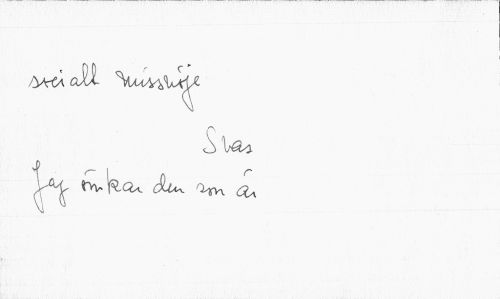 socialt missnöje
Svar
Jag önskar den som är